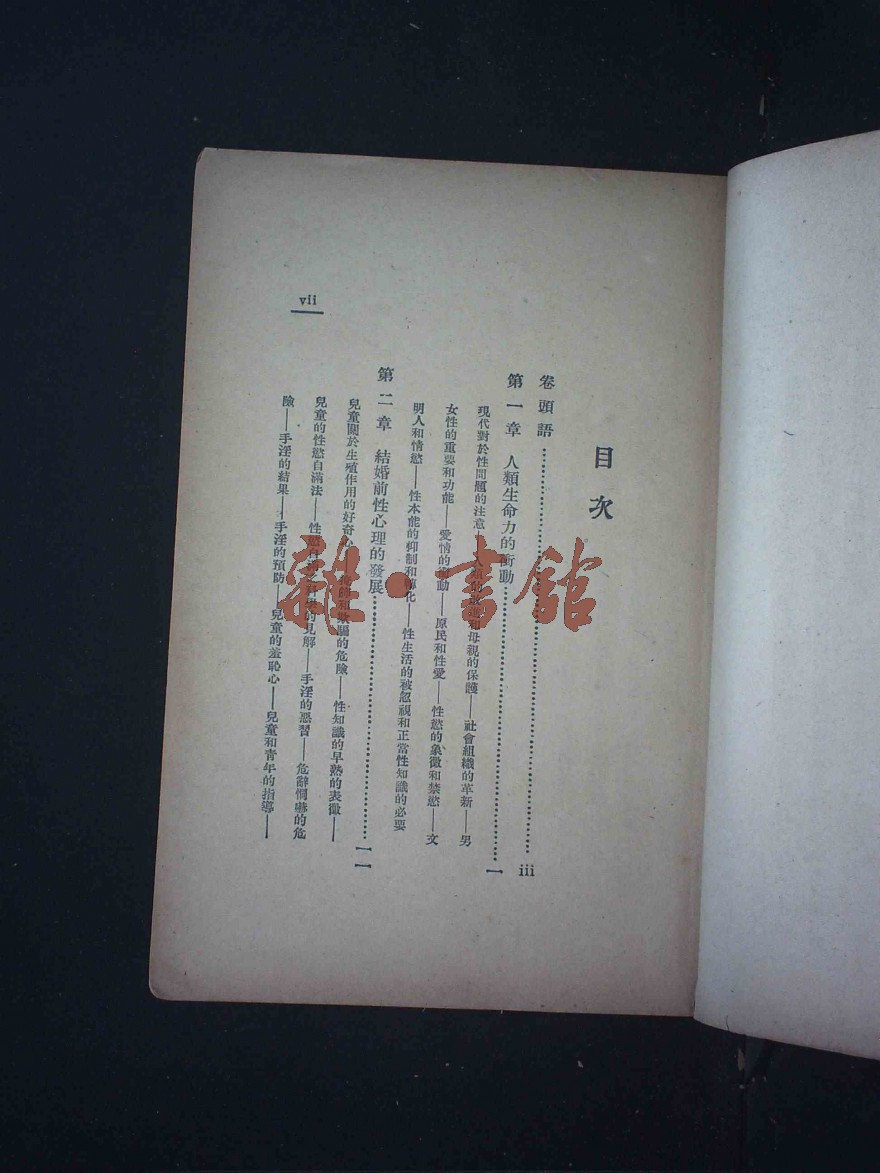 目次
卷頭語 iii
第一章 人類生命力的衝動 一
現代對於性問題的注意 和母親的保護——社會組織的革新——男
女性的重要和功能——愛情的衝動——原民和性愛——性慾的象徵和禁慾——文
明人和情慾——性本能的抑制和轉化——性生活的被忽視和正當性知識的必要
第二章 結婚前性心理的發展 一一
兒童關於生殖作用的好奇心 和欺騙的危險——性知識的早熟的表徵——
兒童的性慾自滿法——性慾自 的見解——手淫的惡習——危辭恫嚇的危
險——手淫的結果——手淫的預防——兒童的羞恥心——兒童和青年的指導——
vii
雜·書館